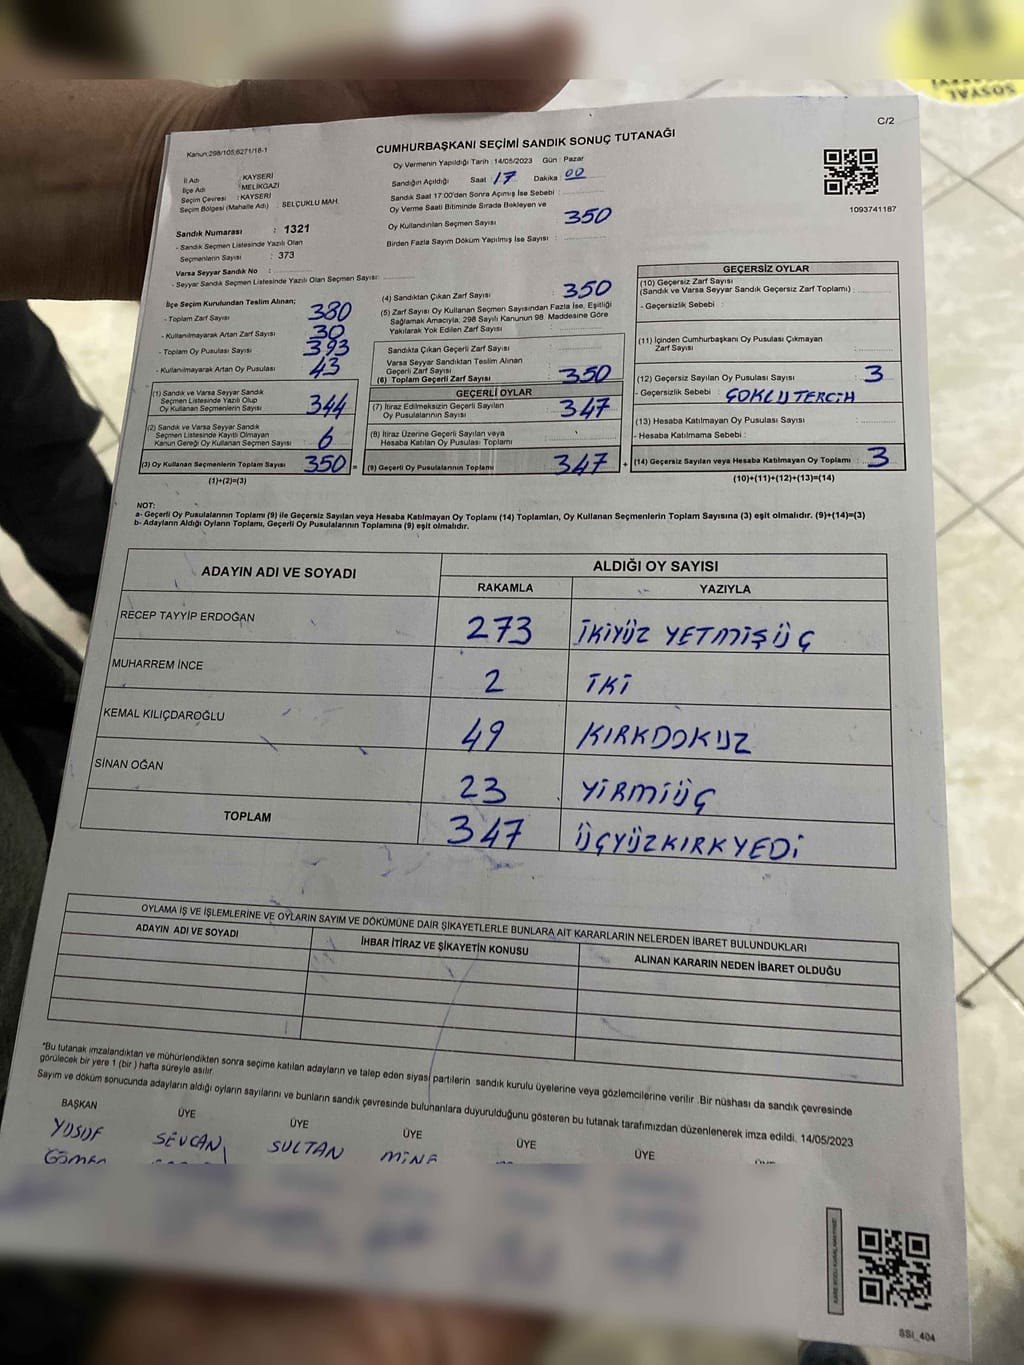 SOSYAL
C/2
Kanun:298/105;6271/18-1
CUMHURBAŞKANI SEÇİMİ SANDIK SONUÇ TUTANAĞI
Oy Vermenin Yapıldığı Tarih :14/05/2023 Gün : Pazar
İl Adı : KAYSERİ
İlçe Adı : MELİKGAZİ
Seçim Çevresi : KAYSERİ
Seçim Bölgesi (Mahalle Adı) : SELÇUKLU MAH.
Sandığın Açıldığı Saat : 17 Dakika : 00
Sandık Saat 17:00'den Sonra Açımış İse Sebebi :
Oy Verme Saati Bitiminde Sırada Bekleyen ve
Oy Kullandırılan Seçmen Sayısı : 350
Birden Fazla Sayım Döküm Yapılmış İse Sayısı :
1093741187
Sandık Numarası : 1321
- Sandık Seçmen Listesinde Yazılı Olan
Seçmenlerin Sayısı : 373
Varsa Seyyar Sandık No :
- Seyyar Sandık Seçmen Listesinde Yazılı Olan Seçmen Sayısı:
İlçe Seçim Kurulundan Teslim Alınan;
- Toplam Zarf Sayısı : 380
- Kullanılmayarak Artan Zarf Sayısı : 30
- Toplam Oy Pusulası Sayısı : 393
- Kullanılmayarak Artan Oy Pusulası : 43
(1) Sandık ve Varsa Seyyar Sandık
Seçmen Listesinde Yazılı Olup
Oy Kullanan Seçmenlerin Sayısı : 344
(2) Sandık ve Varsa Seyyar Sandık
Seçmen Listesinde Kayıtlı Olmayan
Kanun Gereği Oy Kullanan Seçmen Sayısı : 6
(3) Oy Kullanan Seçmenlerin Toplam Sayısı : 350 =
(1)+(2)=(3)
(4) Sandıktan Çıkan Zarf Sayısı : 350
(5) Zarf Sayısı Oy Kullanan Seçmen Sayısından Fazla İse, Eşitliği
Sağlamak Amacıyla; 298 Sayılı Kanunun 98. Maddesine Göre
Yakılarak Yok Edilen Zarf Sayısı :
Sandıkta Çıkan Geçerli Zarf Sayısı :
Varsa Seyyar Sandıktan Teslim Alınan
Geçerli Zarf Sayısı :
(6) Toplam Geçerli Zarf Sayısı : 350
GEÇERLİ OYLAR
(7) İtiraz Edilmeksizin Geçerli Sayılan
Oy Pusulalarının Sayısı : 347
(8) İtiraz Üzerine Geçerli Sayılan veya
Hesaba Katılan Oy Pusulası Toplamı :
(9) Geçerli Oy Pusulalarının Toplamı : 347 +
GEÇERSİZ OYLAR
(10) Geçersiz Zarf Sayısı
(Sandık ve Varsa Seyyar Sandık Geçersiz Zarf Toplamı) :
- Geçersizlik Sebebi :
(11) İçinden Cumhurbaşkanı Oy Pusulası Çıkmayan
Zarf Sayısı :
(12) Geçersiz Sayılan Oy Pusulası Sayısı : 3
- Geçersizlik Sebebi : ÇOKLU TERCİH
(13) Hesaba Katılmayan Oy Pusulası Sayısı :
- Hesaba Katılmama Sebebi :
(14) Geçersiz Sayılan veya Hesaba Katılmayan Oy Toplamı : 3
(10)+(11)+(12)+(13)=(14)
NOT:
a- Geçerli Oy Pusulalarının Toplamı (9) ile Geçersiz Sayılan veya Hesaba Katılmayan Oy Toplamı (14) Toplamları, Oy Kullanan Seçmenlerin Toplam Sayısına (3) eşit olmalıdır. (9)+(14)=(3)
b- Adayların Aldığı Oyların Toplamı, Geçerli Oy Pusulalarının Toplamına (9) eşit olmalıdır.
ADAYIN ADI VE SOYADI
ALDIĞI OY SAYISI
RAKAMLA YAZIYLA
RECEP TAYYİP ERDOĞAN 273 İKİYÜZ YETMİŞÜÇ
MUHARREM İNCE 2 İKİ
KEMAL KILIÇDAROĞLU 49 KIRKDOKUZ
SİNAN OĞAN 23 YİRMİÜÇ
TOPLAM 347 ÜÇYÜZKIRKYEDİ
OYLAMA İŞ VE İŞLEMLERİNE VE OYLARIN SAYIM VE DÖKÜMÜNE DAİR ŞİKAYETLERLE BUNLARA AİT KARARLARIN NELERDEN İBARET BULUNDUKLARI
ADAYIN ADI VE SOYADI İHBAR İTİRAZ VE ŞİKAYETİN KONUSU ALINAN KARARIN NEDEN İBARET OLDUĞU
*Bu tutanak imzalandıktan ve mühürlendikten sonra seçime katılan adayların ve talep eden siyasi partilerin sandık kurulu üyelerine veya gözlemcilerine verilir .Bir nüshası da sandık çevresinde
görülecek bir yere 1 (bir ) hafta süreyle asılır.
Sayım ve döküm sonucunda adayların aldığı oyların sayılarını ve bunların sandık çevresinde bulunanlara duyurulduğunu gösteren bu tutanak tarafımızdan düzenlenerek imza edildi. 14/05/2023
BAŞKAN ÜYE ÜYE ÜYE ÜYE ÜYE
YUSUF SEVCAN SULTAN MİNE
SSİ_404